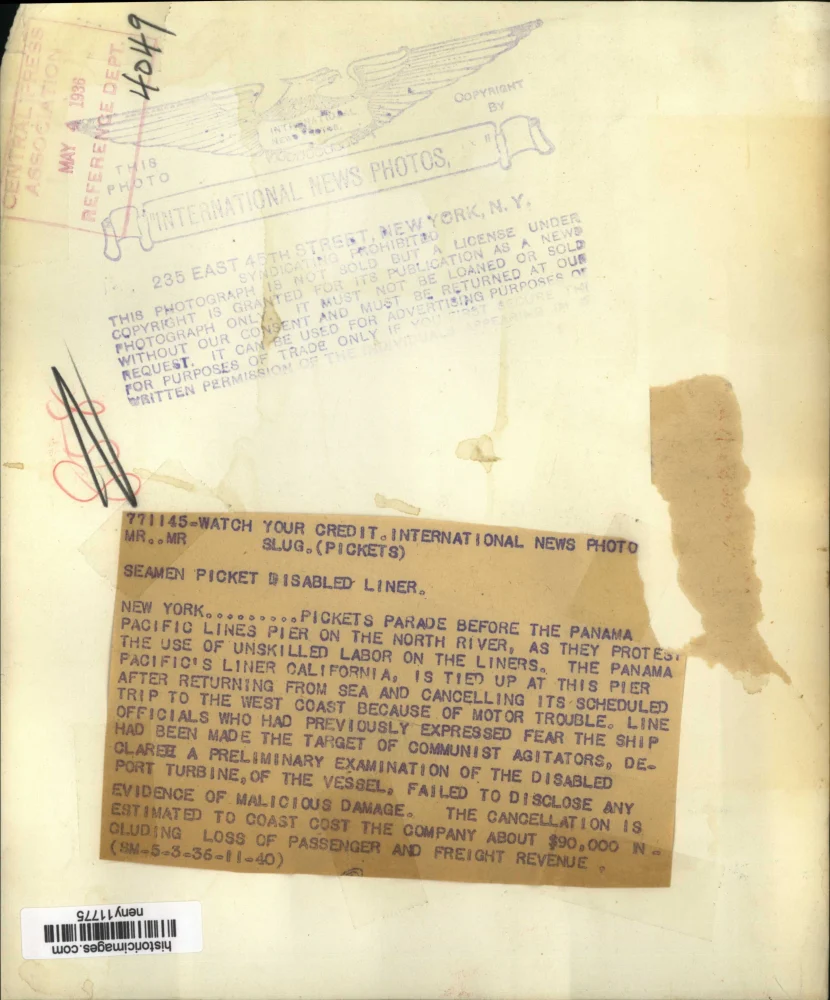 4049
CENTRAL PRESS
ASSOCIATION
MAY 4 1936
REFERENCE DEPT.
INTERNATIONAL
NEWS PHOTOS
COPYRIGHT
BY
THIS
PHOTO
"INTERNATIONAL NEWS PHOTOS,"
235 EAST 45TH STREET, NEW YORK, N. Y.
SYNDICATING PROHIBITED
THIS PHOTOGRAPH IS NOT SOLD BUT A LICENSE UNDER
COPYRIGHT IS GRANTED FOR ITS PUBLICATION AS A NEWS
PHOTOGRAPH ONLY. IT MUST NOT BE LOANED OR SOLD
WITHOUT OUR CONSENT AND MUST BE RETURNED AT OUR
REQUEST. IT CAN BE USED FOR ADVERTISING PURPOSES OR
FOR PURPOSES OF TRADE ONLY IF YOU FIRST SECURE THE
WRITTEN PERMISSION OF THE INDIVIDUALS APPEARING IN
858
771145=WATCH YOUR CREDIT.INTERNATIONAL NEWS PHOTO
MR..MR SLUG.(PICKETS)
SEAMEN PICKET DISABLED LINER.
NEW YORK.........PICKETS PARADE BEFORE THE PANAMA
PACIFIC LINES PIER ON THE NORTH RIVER, AS THEY PROTEST
THE USE OF UNSKILLED LABOR ON THE LINERS. THE PANAMA
PACIFIC'S LINER CALIFORNIA, IS TIED UP AT THIS PIER
AFTER RETURNING FROM SEA AND CANCELLING ITS SCHEDULED
TRIP TO THE WEST COAST BECAUSE OF MOTOR TROUBLE. LINE
OFFICIALS WHO HAD PREVIOUSLY EXPRESSED FEAR THE SHIP
HAD BEEN MADE THE TARGET OF COMMUNIST AGITATORS, DE-
CLARED A PRELIMINARY EXAMINATION OF THE DISABLED
PORT TURBINE, OF THE VESSEL, FAILED TO DISCLOSE ANY
EVIDENCE OF MALICIOUS DAMAGE. THE CANCELLATION IS
ESTIMATED TO COAST COST THE COMPANY ABOUT $90,000 IN-
CLUDING LOSS OF PASSENGER AND FREIGHT REVENUE.
(SM-5-3-36-11-40)
historicimages.com
neny11775